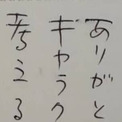 ありがと
ギャラク
考える